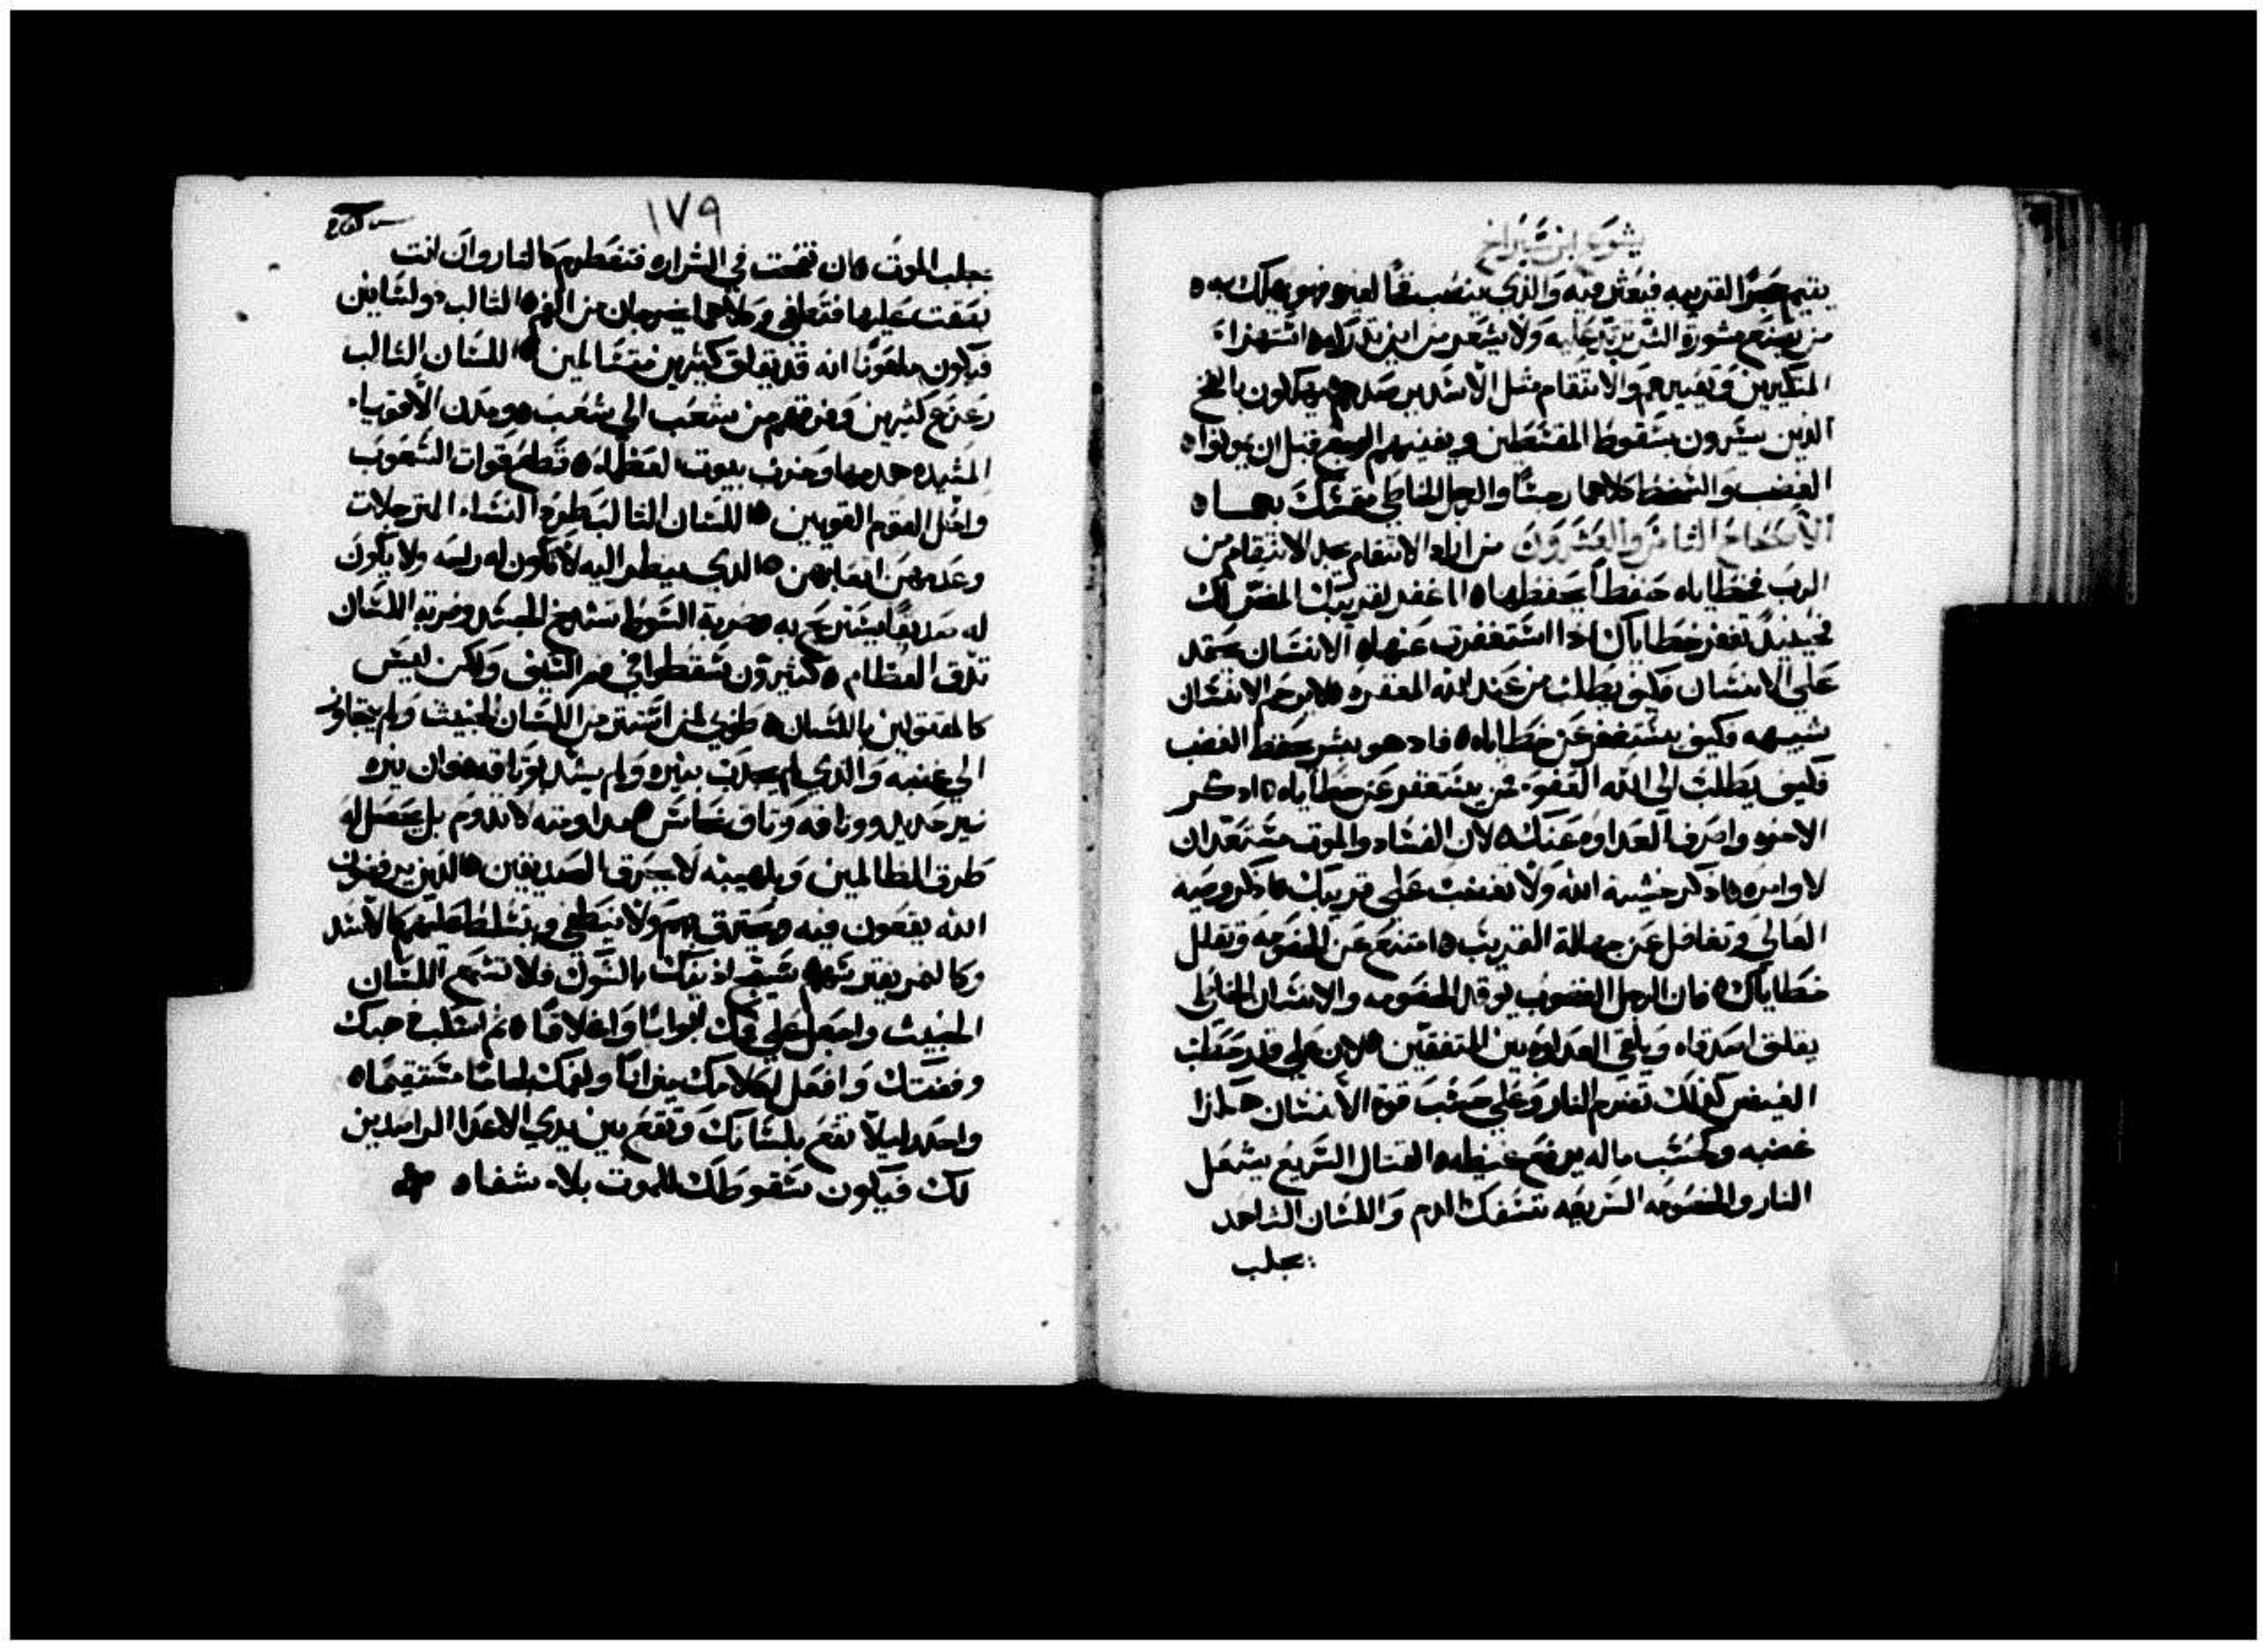 يشوع ابن شيراخ
يقيم حجرًا لقريبه فيعثر فيه والذي ينصب فخًا لغيره فهو يهلك به ه
من يصنع مشورة الشر ترتد عليه ولا يشعر من اين تدركه ه اشتهزاء
المتكبرين وتعييرهم والانتقام مثل الاشد يرصدهم ه يهلكون بالفخ
الذين يشرون بشقوط المقشطين ويفنيهم الوجع قبل ان يموتوا ه
الغضب والشخط كلاهما رجشًا والرجل الخاطي متمشك بهما ه
الاصحاح الثامن والعشرون من اراد الانتقام يجد الانتقام من
الرب فخطاياه حفظًا يحفظها ه اغفر لقريبك المضر لك
فحينيذ تغفر خطاياك اذا اشتغفرت عنها ه الانشان يحقد
على الانشان فكيف يطلب من عند الله المغفره ه لا يرحم الانشان
شبيهه فكيف يشتغفر عن خطاياه ه فاد هو بشر يحفظ الغضب
فكيف يطلب الى الله العفو فمن يشتغفر عن خطاياه ه ادكر
الاخره واصرف العداوه عنك ه لان الفشاد والموت مشتعدان
لاوامره ه ادكر خشية الله ولا تغضب على قريبك ه ادكر وصية
العالي وتغافل عن جهالة القريب ه امتنع عن الخصومه وتقلل
خطاياك ه فان الرجل الغضوب يوقد الخصومه والانشان الخاطي
يقلق اصدقاه ويلقي العداوه بين المتفقين ه لان على قدر حطب
الغيض كذلك تضرم النار وعلى حشب قوة الانشان هكذا
غضبه وكحشب ماله يرفع غيظه ه القتال الشريع يشعل
النار والخصومه الشريعه تشفك الدم واللشان الشاهد
يجلب
١٧٩
يجلب الموت ه ان نفخت في الشراره فتضطرم كالنار وان انت
بصقت عليها فتطفى وكلاهما يخرجان من الفم ه الثالب ذو لشانين
فيكون ملعونًا انه قد يقلق كثيرين متشالمين ه اللشان الثالب
زعزع كثيرين وفرقهم من شعب الى شعب ه ومدن الاقويا
المشيده هدمها وخرب بيوت العظما ه قطع قوات الشعوب
واضل القوم القويين ه اللشان الثالب طرد النشاء المترجلات
وعدمهن اتعابهن ه الذي ينظر اليه لا تكون له راحه ولا يكون
له صديقًا يشتريح به ه ضربة الشوط تشدخ الجشد وضربة اللشان
تدق العظام ه كثيرون شقطوا في فم الشيف ولكن ليش
كالمقتولين باللشان ه طوبى لمن اشتتر من اللشان الخبيث ولم يتجاوز
الى غضبه والذي لم يجدب بنيره ولم يشد بوثاقه ه فان نيره
نير حديد ووثاقه وثاق نحاش ه مداومته لا تدوم بل يحصل له
طرق الظالمين وبلهيبه لا يحرق الصديقين ه الذين يرفضون
الله يقعون فيه ويحترق بهم ولا ينطفي ويتشلط عليهم كالاشد
وكالنمر يفترشهم ه شيج اذنيك بالشوك فلا تشمع اللشان
الخبيث واجعل على فمك ابوابًا واغلاقًا ه ثم اشكب ذهبك
وفضتك وافعل لكلامك ميزانًا ولفمك لجامًا مشتقيمًا ه
واحدر ليلا تقع بلشانك وتقع بين يدي الاعدا الراصدين
لك فيكون شقوطك للموت بلا شفاه